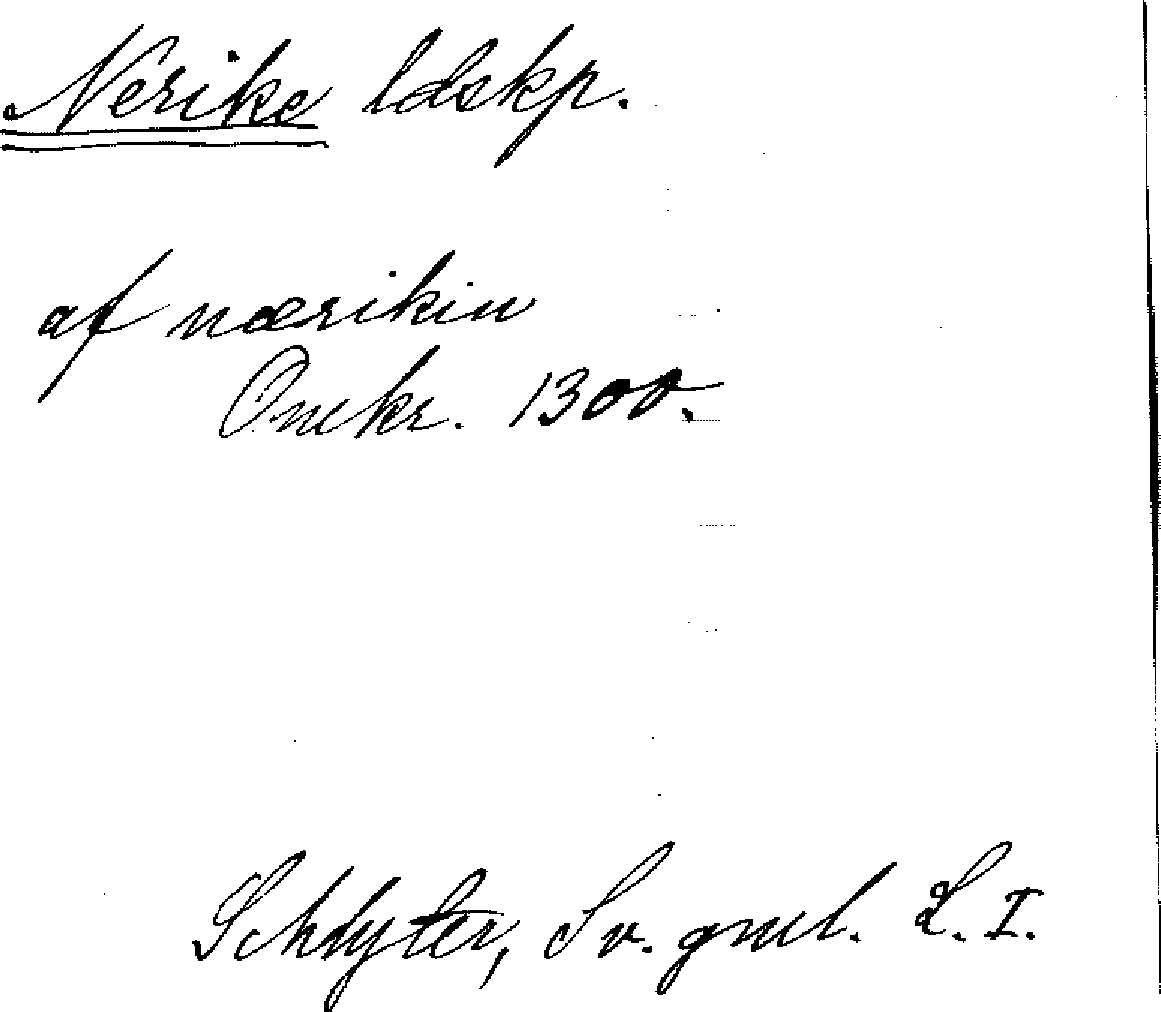 Nerike ldskp.
af nærikin
Omkr. 1300.
Schlyter, Sv. gml. L. I.